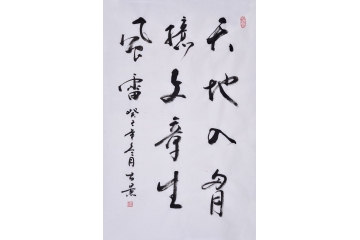 天地入胸
臆文章生
風雷癸巳年冬月